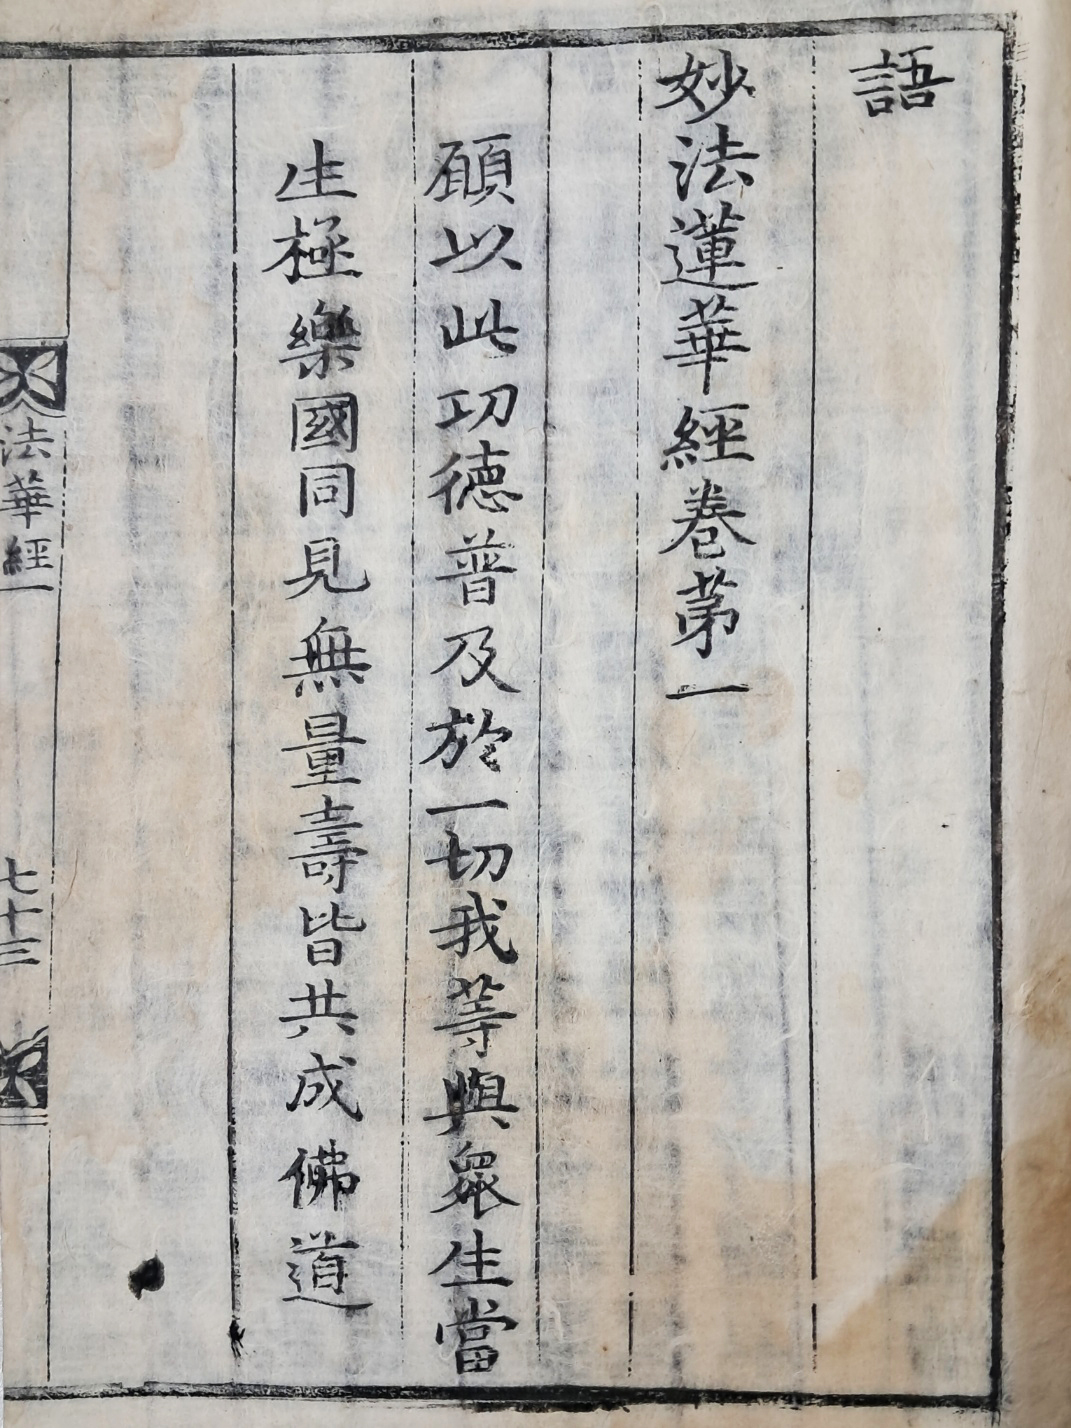 語
妙法蓮華經卷第一
願以此功德普及於一切我等與眾生當
生極樂國同見無量壽皆共成佛道
法華經一
七十三